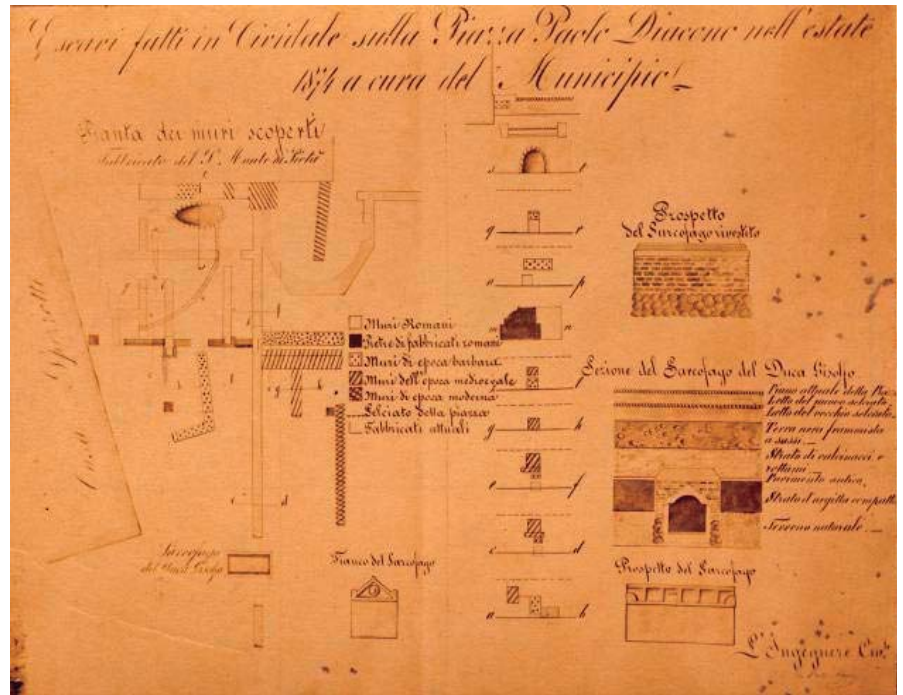 Escavi fatti in Cividale sulla Piazza Paolo Diacono nell'estate
1874 a cura del Municipio
Pianta dei muri scoperti
Fabbricato del S. Monte di Pietà
Casa
Muri Romani
Pietre di fabbricati romani
Muri di epoca barbara
Muri dell'epoca medioevale
Muri di epoca moderna
Selciato della piazza
Fabbricati attuali
Sarcofago
del Duca Gisolfo
Fianco del Sarcofago
s t
q r
o p
m n
g h
e f
c d
a b
Prospetto
del Sarcofago rivestito
Sezione del Sarcofago del Duca Gisolfo
Piano attuale della
Letto del nuovo selciato
Letto del vecchio selciato
Terra nera frammista
a sassi
Strato di calcinacci e
rottami
Pavimento antico
Strato d'argilla compatta
Terreno naturale
Prospetto del Sarcofago
L'Ingegnere